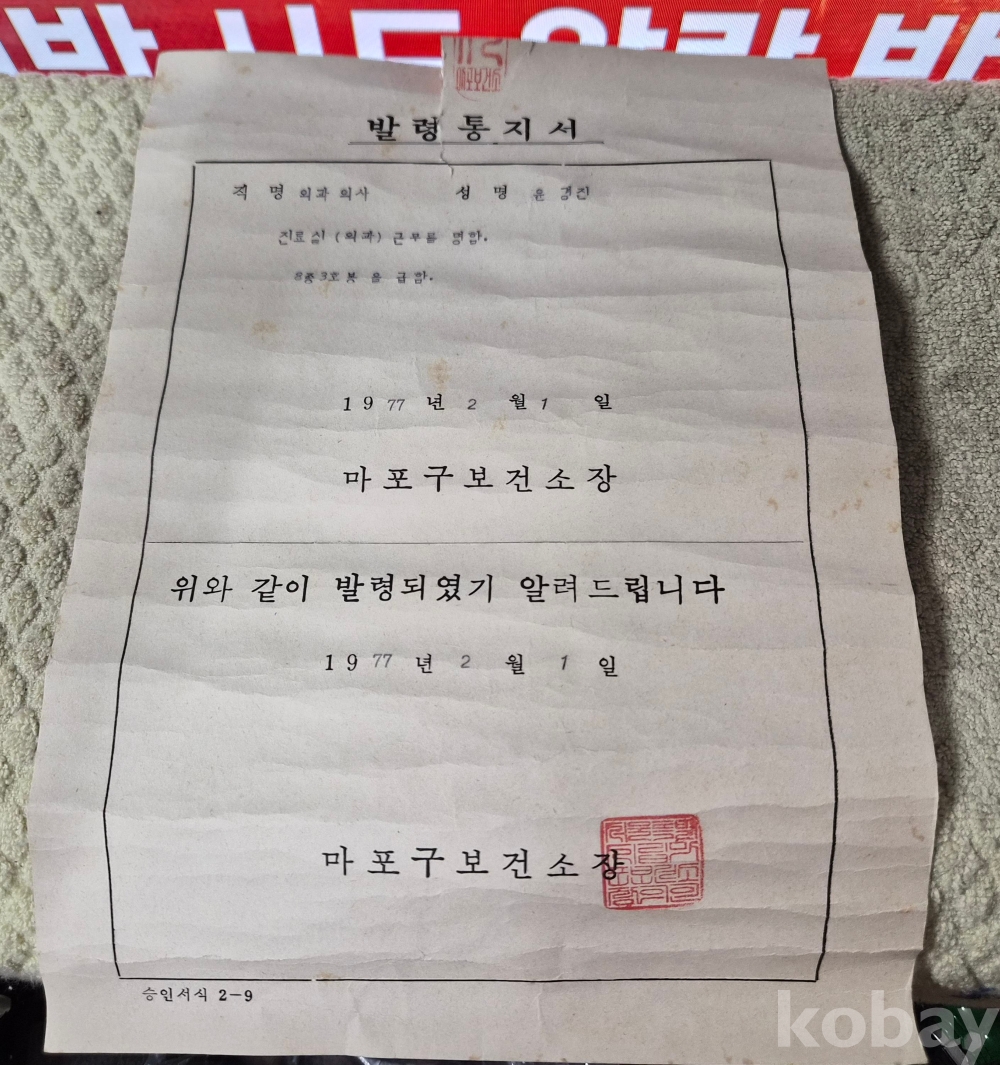 발령통지서
직 명 외과의사 성 명 윤경진
진료실 (외과) 근무를 명함.
8종3호봉을 급함.
1977 년 2 월 1 일
마포구보건소장
위와 같이 발령되였기 알려드립니다
1977 년 2 월 1 일
마포구보건소장
승인서식 2-9
kobay